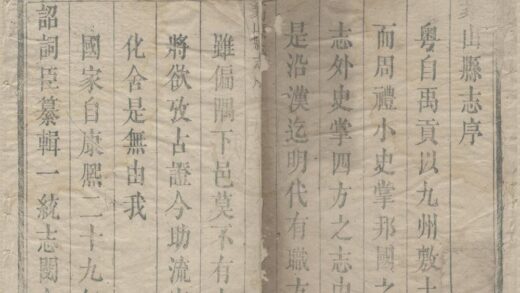 山縣志序
粵自禹貢以九州敷土
而周禮小史掌邦國之
志外史掌四方之志
是沿漢迄明代有職
雖偏隅下邑莫不有
將欲攷古證今助流
化舍是無由我
國家自康熙二十九年
詔詞臣纂輯一統志